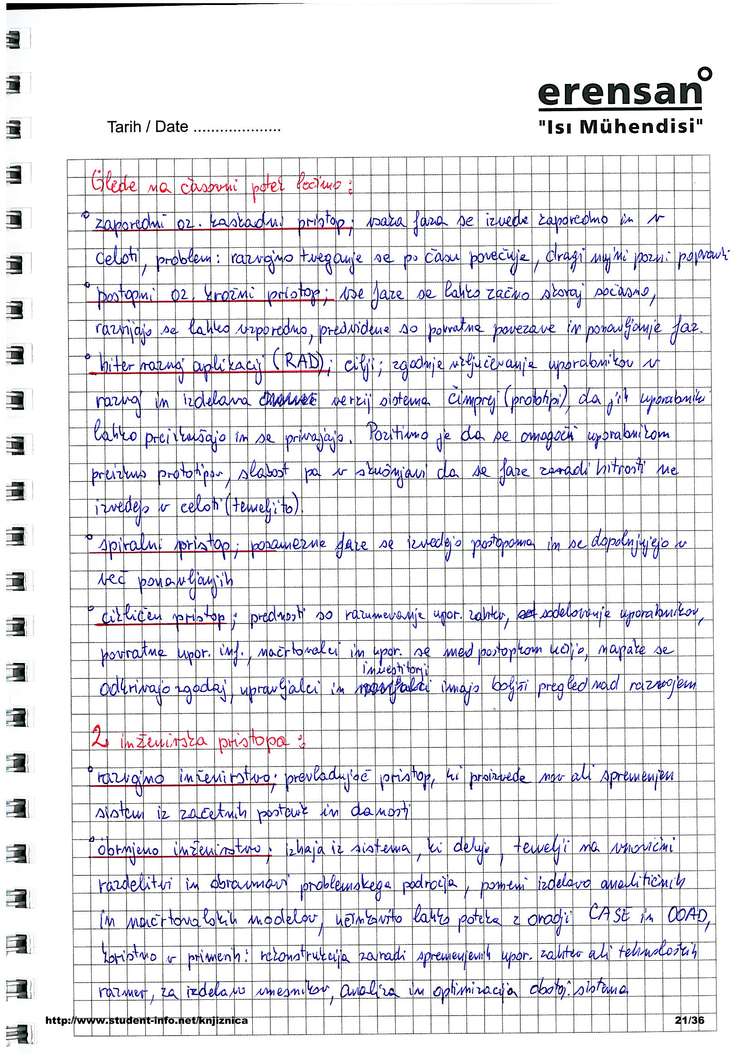 erensan
"Isı Mühendisi"
Tarih / Date ....................
Glede na časovni potek ločimo:
° zaporedni oz. kaskadni pristop; vsaka faza se izvede zaporedno in v
celoti, problem: razvojno tveganje se po času povečuje, dragi nujni pozni popravki
° postopni oz. krožni pristop; vse faze se lahko začno skoraj sočasno,
razvijajo se lahko vzporedno, predvidene so povratne povezave in ponavljanje faz.
° hiter razvoj aplikacij (RAD); cilji; zgodnje vključevanje uporabnikov v
razvoj in izdelava verzij sistema čimprej (prototipi), da jih uporabniki
lahko preizkušajo in se privajajo. Pozitivno je da se omogoči uporabnikom
preizkus prototipov, slabost pa v skušnjavi da se faze zaradi hitrosti ne
izvedejo v celoti (temeljito).
° spiralni pristop; posamezne faze se izvedejo postopoma in se dopolnjujejo v
več ponavljanjih
° cikličen pristop; prednosti so razumevanje upor. zahtev, sodelovanje uporabnikov,
povratne upor. inf., načrtovalci in upor. se med postopkom učijo, napake se
odkrivajo zgodaj, upravljalci in investitorji imajo boljši pregled nad razvojem
2 inženirska pristopa:
° razvojno inženirstvo; prevladujoč pristop, ki proizvede nov ali spremenjen
sistem iz začetnih postavk in danosti
° obrnjeno inženirstvo; izhaja iz sistema, ki deluje, temelji na vnovični
razdelitvi in obravnavi problemskega področja, pomeni izdelavo analitičnih
in načrtovalskih modelov, učinkovito lahko poteka z orodji CASE in OOAD,
koristno v primerih: rekonstrukcija zaradi spremenjenih upor. zahtev ali tehnoloških
razmer, za izdelavo vmesnikov, analiza in optimizacija obstoj. sistema
http://www.student-info.net/knjiznica
21/36